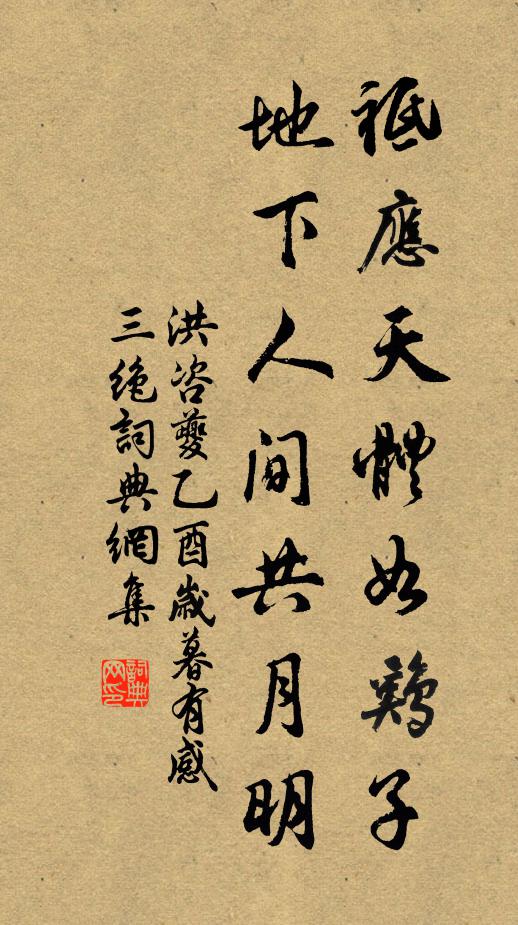 祗應天體如鷄子
地下人間共月明
洪咨夔乙酉歲暮有感
三絶詞典網集
詞典網印